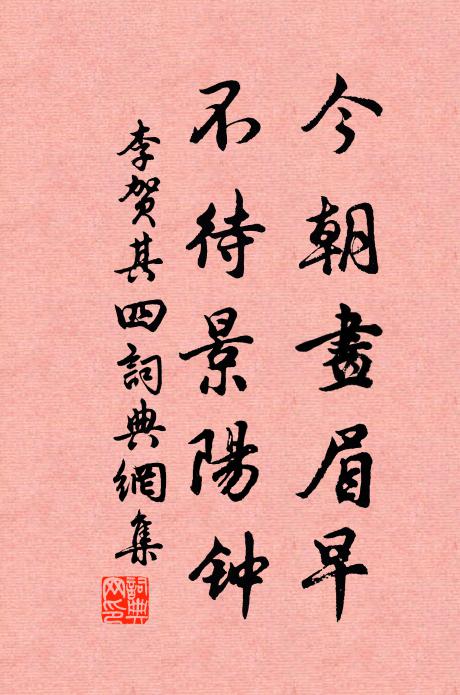 今朝畫眉早
不待景陽钟
李贺其四詞典網集
詞典
网印